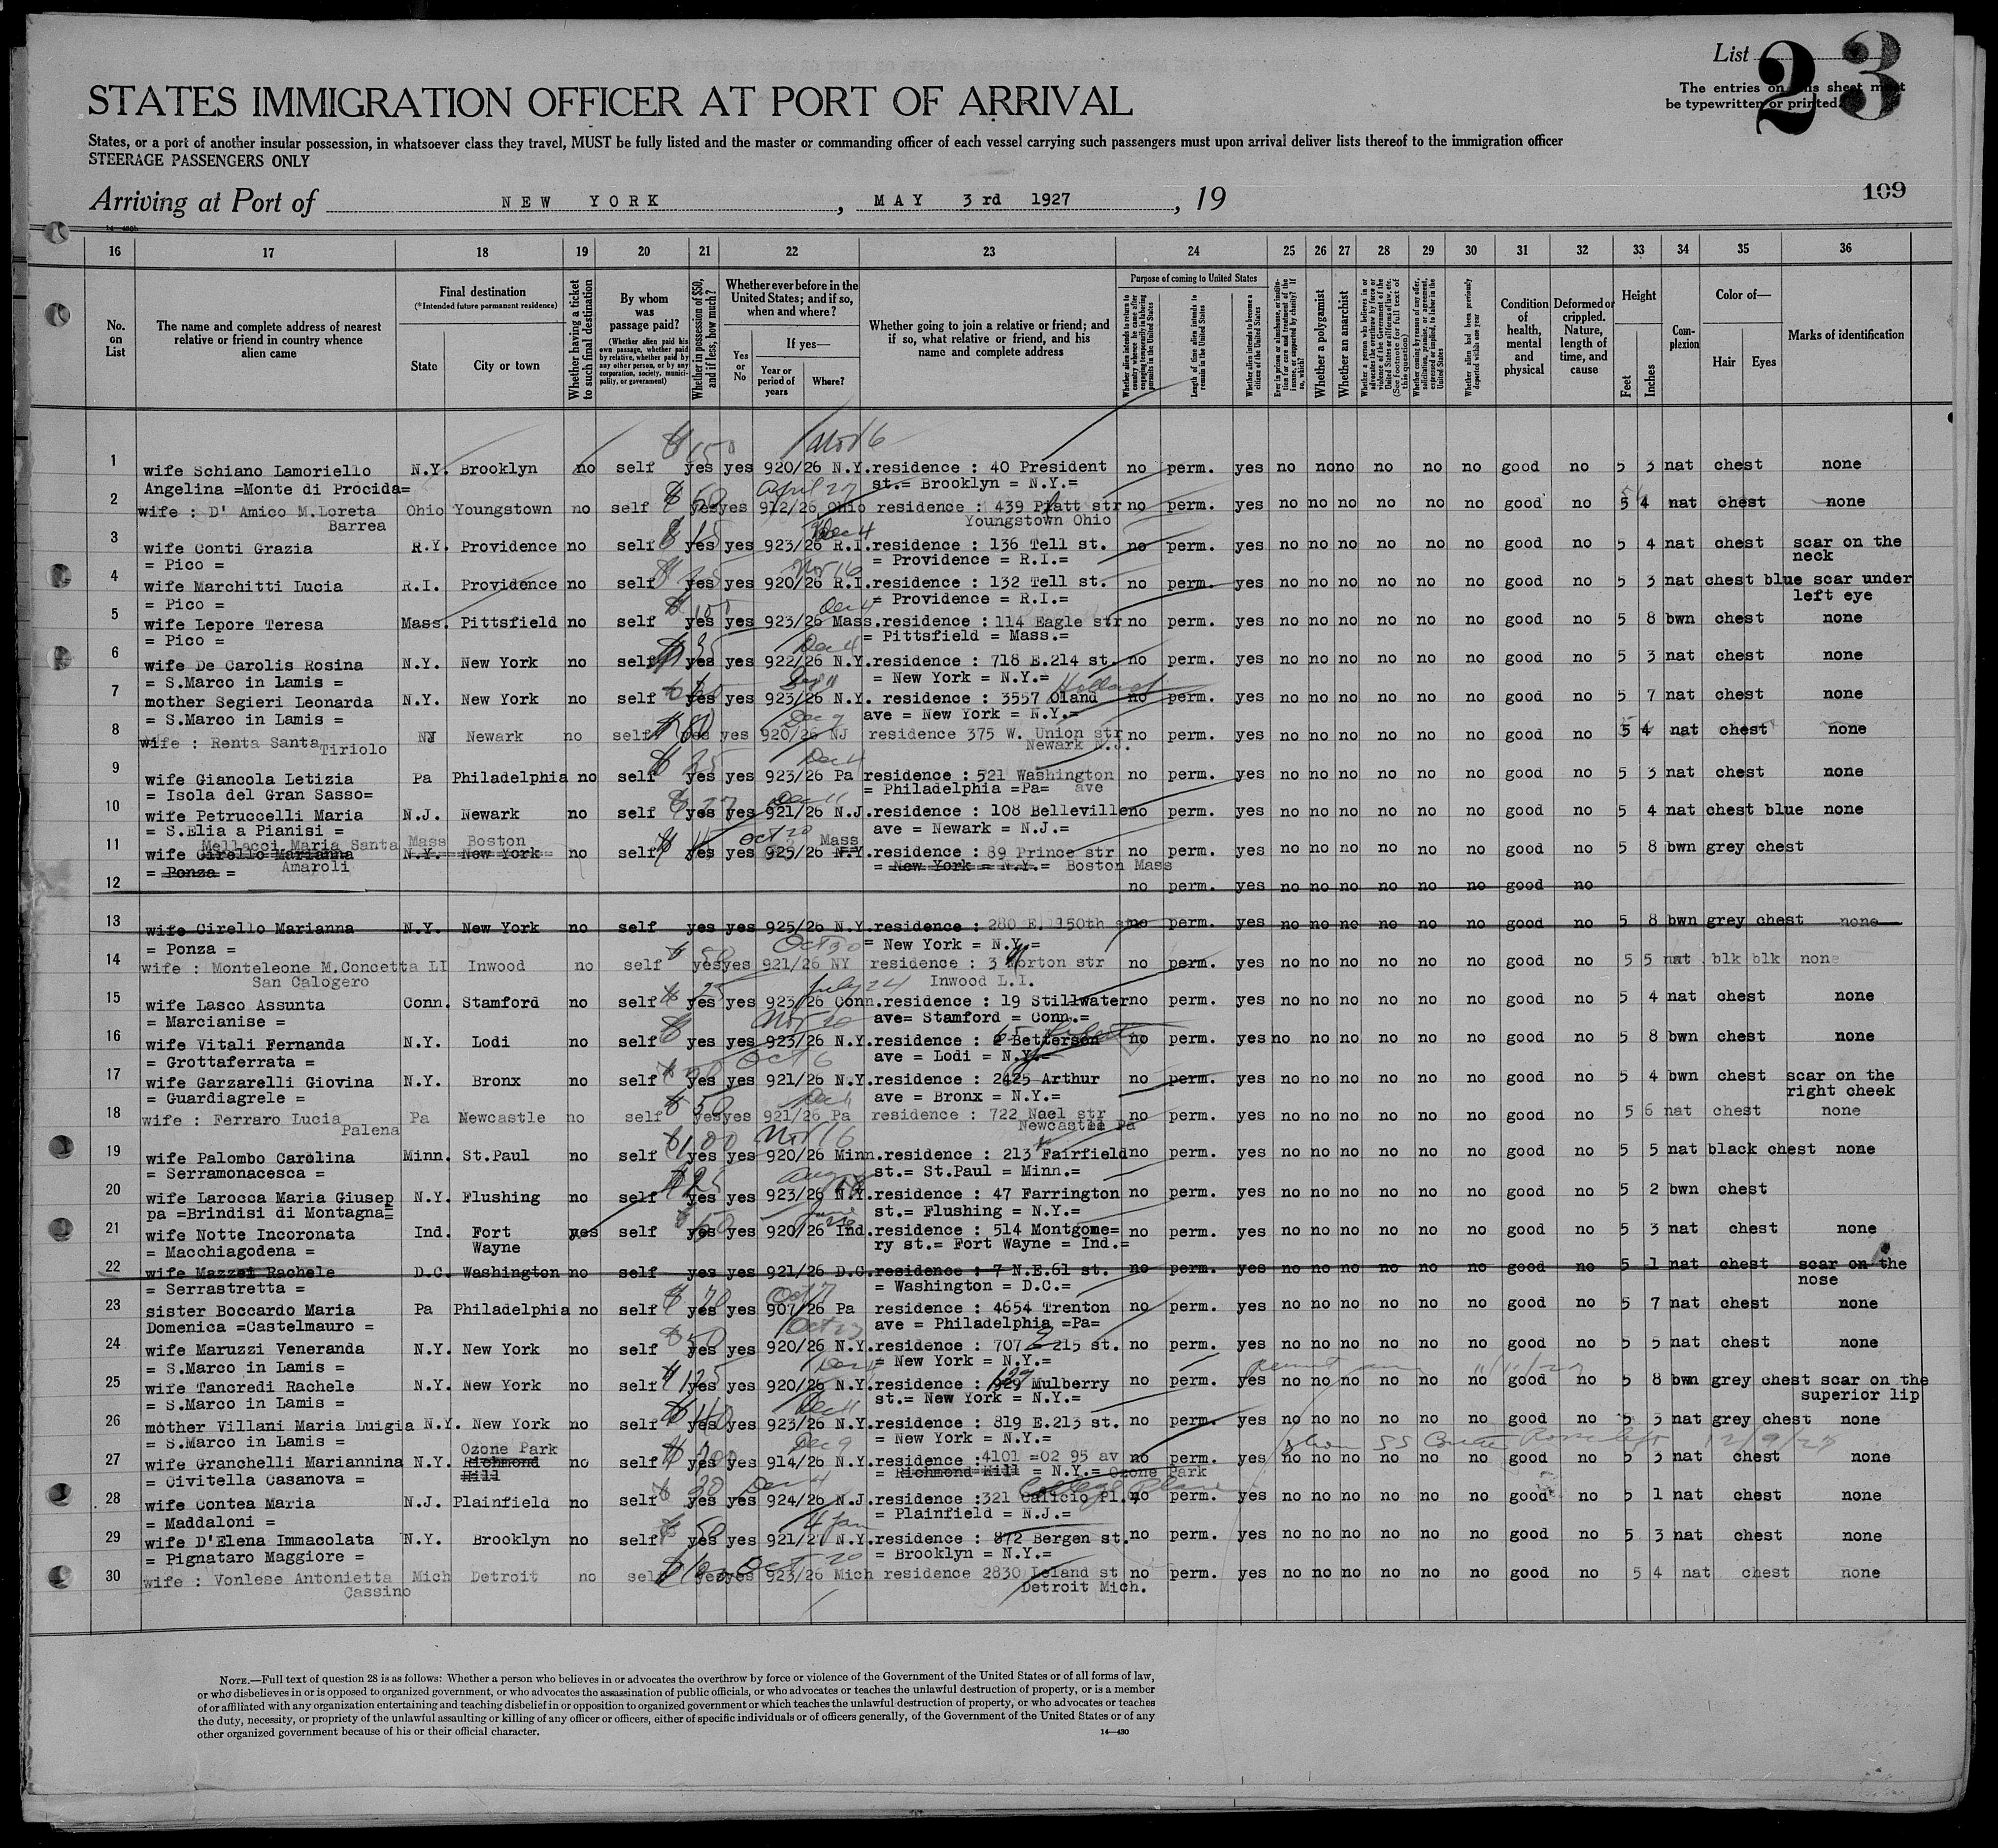 List 23
The entries on this sheet must
be typewritten or printed.
STATES IMMIGRATION OFFICER AT PORT OF ARRIVAL
States, or a port of another insular possession, in whatsoever class they travel, MUST be fully listed and the master or commanding officer of each vessel carrying such passengers must upon arrival deliver lists thereof to the immigration officer
STEERAGE PASSENGERS ONLY
Arriving at Port of NEW YORK, MAY 3rd 1927, 19
109
16 17 18 19 20 21 22 23 24 25 26 27 28 29 30 31 32 33 34 35 36
No. on List
The name and complete address of nearest relative or friend in country whence alien came
Final destination
(*Intended future permanent residence)
State
City or town
Whether having a ticket to such final destination
By whom was passage paid?
(Whether alien paid his own passage, whether paid by relative, whether paid by any other person, or by any corporation, society, municipality, or government)
Whether in possession of $50, and if less, how much?
Whether ever before in the United States; and if so, when and where?
Yes or No
If yes—
Year or period of years
Where?
Whether going to join a relative or friend; and if so, what relative or friend, and his name and complete address
Purpose of coming to United States
Length of time alien intends to remain in the United States
Whether alien intends to become a citizen of the United States
Whether a polygamist
Whether an anarchist
Condition of health, mental and physical
Deformed or crippled. Nature, length of time, and cause
Height
Feet
Inches
Complexion
Color of—
Hair
Eyes
Marks of identification
1 wife Schiano Lamoriello N.Y. Brooklyn no self yes yes 920/26 N.Y. residence : 40 President no perm. yes no no no no no no good no 5 3 nat chest none
Angelina =Monte di Procida= st.= Brooklyn = N.Y.=
2 wife : D' Amico M.Loreta Ohio Youngstown no self yes yes 912/26 Ohio residence : 439 Platt str no perm. yes no no no no no no good no 5 4 nat chest none
Barrea Youngstown Ohio
3 wife Conti Grazia R.Y. Providence no self yes yes 923/26 R.I. residence : 136 Tell st. no perm. yes no no no no no no good no 5 4 nat chest scar on the
= Pico = = Providence = R.I.= neck
4 wife Marchitti Lucia R.I. Providence no self yes yes 920/26 R.I. residence : 132 Tell st. no perm. yes no no no no no no good no 5 3 nat chest blue scar under
= Pico = = Providence = R.I.= left eye
5 wife Lepore Teresa Mass. Pittsfield no self yes yes 923/26 Mass. residence : 114 Eagle str no perm. yes no no no no no no good no 5 8 bwn chest none
= Pico = = Pittsfield = Mass.=
6 wife De Carolis Rosina N.Y. New York no self yes yes 922/26 N.Y. residence : 718 E.214 st. no perm. yes no no no no no no good no 5 3 nat chest none
= S.Marco in Lamis = = New York = N.Y.=
7 mother Segieri Leonarda N.Y. New York no self yes yes 923/26 N.Y. residence : 3557 Oland no perm. yes no no no no no no good no 5 7 nat chest none
= S.Marco in Lamis = ave = New York = N.Y.=
8 wife : Renta Santa NJ Newark no self yes yes 920/26 NJ residence 375 W. Union str no perm. yes no no no no no no good no 5 4 nat chest none
Tiriolo Newark N.J.
9 wife Giancola Letizia Pa Philadelphia no self yes yes 923/26 Pa residence : 521 Washington no perm. yes no no no no no no good no 5 3 nat chest none
= Isola del Gran Sasso= = Philadelphia =Pa= ave
10 wife Petruccelli Maria N.J. Newark no self yes yes 921/26 N.J. residence : 108 Belleville no perm. yes no no no no no no good no 5 4 nat chest blue none
= S.Elia a Pianisi = ave = Newark = N.J.=
Mellacci Maria Santa Mass Boston Mass
11 wife Girello Marianna N.Y. New York no self yes yes 925/26 N.Y. residence : 89 Prince str no perm. yes no no no no no no good no 5 8 bwn grey chest
= Ponza = Amaroli = New York = N.Y.= Boston Mass
12 no perm. yes no no no no no no good no
13 wife Girello Marianna N.Y. New York no self yes yes 925/26 N.Y. residence : 280 E. 150th st no perm. yes no no no no no no good no 5 8 bwn grey chest none
= Ponza = = New York = N.Y.=
14 wife : Monteleone M.Concetta LI Inwood no self yes yes 921/26 NY residence : 3 Morton str no perm. yes no no no no no no good no 5 5 nat blk blk none
San Calogero Inwood L.I.
15 wife Lasco Assunta Conn. Stamford no self yes yes 923/26 Conn. residence : 19 Stillwater no perm. yes no no no no no no good no 5 4 nat chest none
= Marcianise = ave= Stamford = Conn.=
16 wife Vitali Fernanda N.Y. Lodi no self yes yes 923/26 N.Y. residence : Betterson no perm. yes no no no no no no good no 5 8 bwn chest none
= Grottaferrata = ave = Lodi = N.Y.=
17 wife Garzarelli Giovina N.Y. Bronx no self yes yes 921/26 N.Y. residence : 2425 Arthur no perm. yes no no no no no no good no 5 4 bwn chest scar on the
= Guardiagrele = ave = Bronx = N.Y.= right cheek
18 wife : Ferraro Lucia Pa Newcastle no self yes yes 921/26 Pa residence : 722 Nael str no perm. yes no no no no no no good no 5 6 nat chest none
Palena Newcastle Pa
19 wife Palombo Carolina Minn. St.Paul no self yes yes 920/26 Minn. residence : 213 Fairfield no perm. yes no no no no no no good no 5 5 nat black chest none
= Serramonacesca = st.= St.Paul = Minn.=
20 wife Larocca Maria Giusep N.Y. Flushing no self yes yes 923/26 N.Y. residence : 47 Farrington no perm. yes no no no no no no good no 5 2 bwn chest
pa =Brindisi di Montagna= st.= Flushing = N.Y.=
21 wife Notte Incoronata Ind. Fort yes self yes yes 920/26 Ind. residence : 514 Montgome= no perm. yes no no no no no no good no 5 3 nat chest none
= Macchiagodena = Wayne ry st.= Fort Wayne = Ind.=
22 wife Mazzei Rachele D.C. Washington no self yes yes 921/26 D.C. residence : 7 N.E.61 st. no perm. yes no no no no no no good no 5 1 nat chest scar on the
= Serrastretta = = Washington = D.C.= nose
23 sister Boccardo Maria Pa Philadelphia no self yes yes 907/26 Pa residence : 4654 Trenton no perm. yes no no no no no no good no 5 7 nat chest none
Domenica =Castelmauro = ave = Philadelphia =Pa=
24 wife Maruzzi Veneranda N.Y. New York no self yes yes 920/26 N.Y. residence : 707 E 215 st. no perm. yes no no no no no no good no 5 5 nat chest none
= S.Marco in Lamis = = New York = N.Y.=
25 wife Tancredi Rachele N.Y. New York no self yes yes 920/26 N.Y. residence : 129 Mulberry no perm. yes no no no no no no good no 5 8 bwn grey chest scar on the
= S.Marco in Lamis = st.= New York = N.Y.= superior lip
26 mother Villani Maria Luigia N.Y. New York no self yes yes 923/26 N.Y. residence : 819 E.213 st. no perm. yes no no no no no no good no 5 3 nat grey chest none
= S.Marco in Lamis = = New York = N.Y.=
Ozone Park
27 wife Granchelli Mariannina N.Y. Richmond no self yes yes 914/26 N.Y. residence : 4101 =02 95 av no perm. yes no no no no no no good no 5 3 nat chest none
= Civitella Casanova = Hill = Richmond Hill = N.Y.= Ozone Park
28 wife Contea Maria N.J. Plainfield no self yes yes 924/26 N.J. residence :321 Calicio Pl. no perm. yes no no no no no no good no 5 1 nat chest none
= Maddaloni = = Plainfield = N.J.=
29 wife D'Elena Immacolata N.Y. Brooklyn no self yes yes 921/27 N.Y. residence : 872 Bergen st. no perm. yes no no no no no no good no 5 3 nat chest none
= Pignataro Maggiore = = Brooklyn = N.Y.=
30 wife : Vonlese Antonietta Mich Detroit no self yes yes 923/26 Mich residence 2830 Leland st no perm. yes no no no no no no good no 5 4 nat chest none
Cassino Detroit Mich.
NOTE.—Full text of question 28 is as follows: Whether a person who believes in or advocates the overthrow by force or violence of the Government of the United States or of all forms of law,
or who disbelieves in or is opposed to organized government, or who advocates the assassination of public officials, or who advocates or teaches the unlawful destruction of property, or is a member
of or affiliated with any organization entertaining and teaching disbelief in or opposition to organized government or which teaches the unlawful destruction of property, or who advocates or teaches
the duty, necessity, or propriety of the unlawful assaulting or killing of any officer or officers, either of specific individuals or of officers generally, of the Government of the United States or of any
other organized government because of his or their official character.
14—430